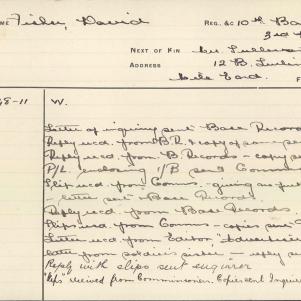 NAME Fisher, David REG. &c 10th Ba
3rd
NEXT OF KIN Mr.
ADDRESS 12 B.
Mile End.
8-11 W.
Letter of inquiry sent Base Record
Reply rec'd from B.R. & copy of same sen
Reply rec'd from B. Records - copy s
P/L. enclosing I/B sent Comm
Slip rec'd from Comms. giving as
- letter sent Base Records.
Reply rec'd from Base Records.
Slip rec'd from Comms - copy s
Letter rec'd from Editor,
letter from soldier's sister - reply
Reply with slips sent enquirer
"Slips" received from Commissioner. Copies sent Inquir